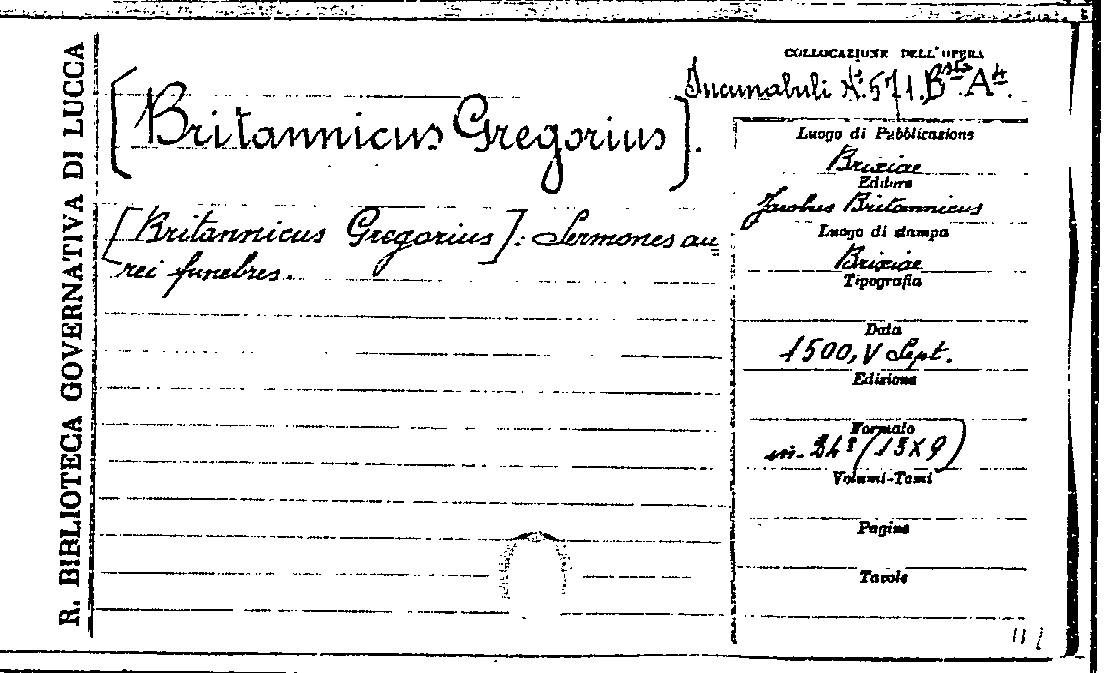 R. BIBLIOTECA GOVERNATIVA DI LUCCA
COLLOCAZIONE DELL'OPERA
Incunabuli N.º 571. Bsta. A4.
[Britannicus Gregorius].
[Britannicus Gregorius]: Sermones au
rei funebres.
Luogo di Pubblicazione
Brixiae
Editore
Jacobus Britannicus
Luogo di stampa
Brixiae
Tipografia
Data
1500, V Sept.
Edizione
Formato
in-24º (13X9)
Volumi-Tomi
Pagine
Tavole